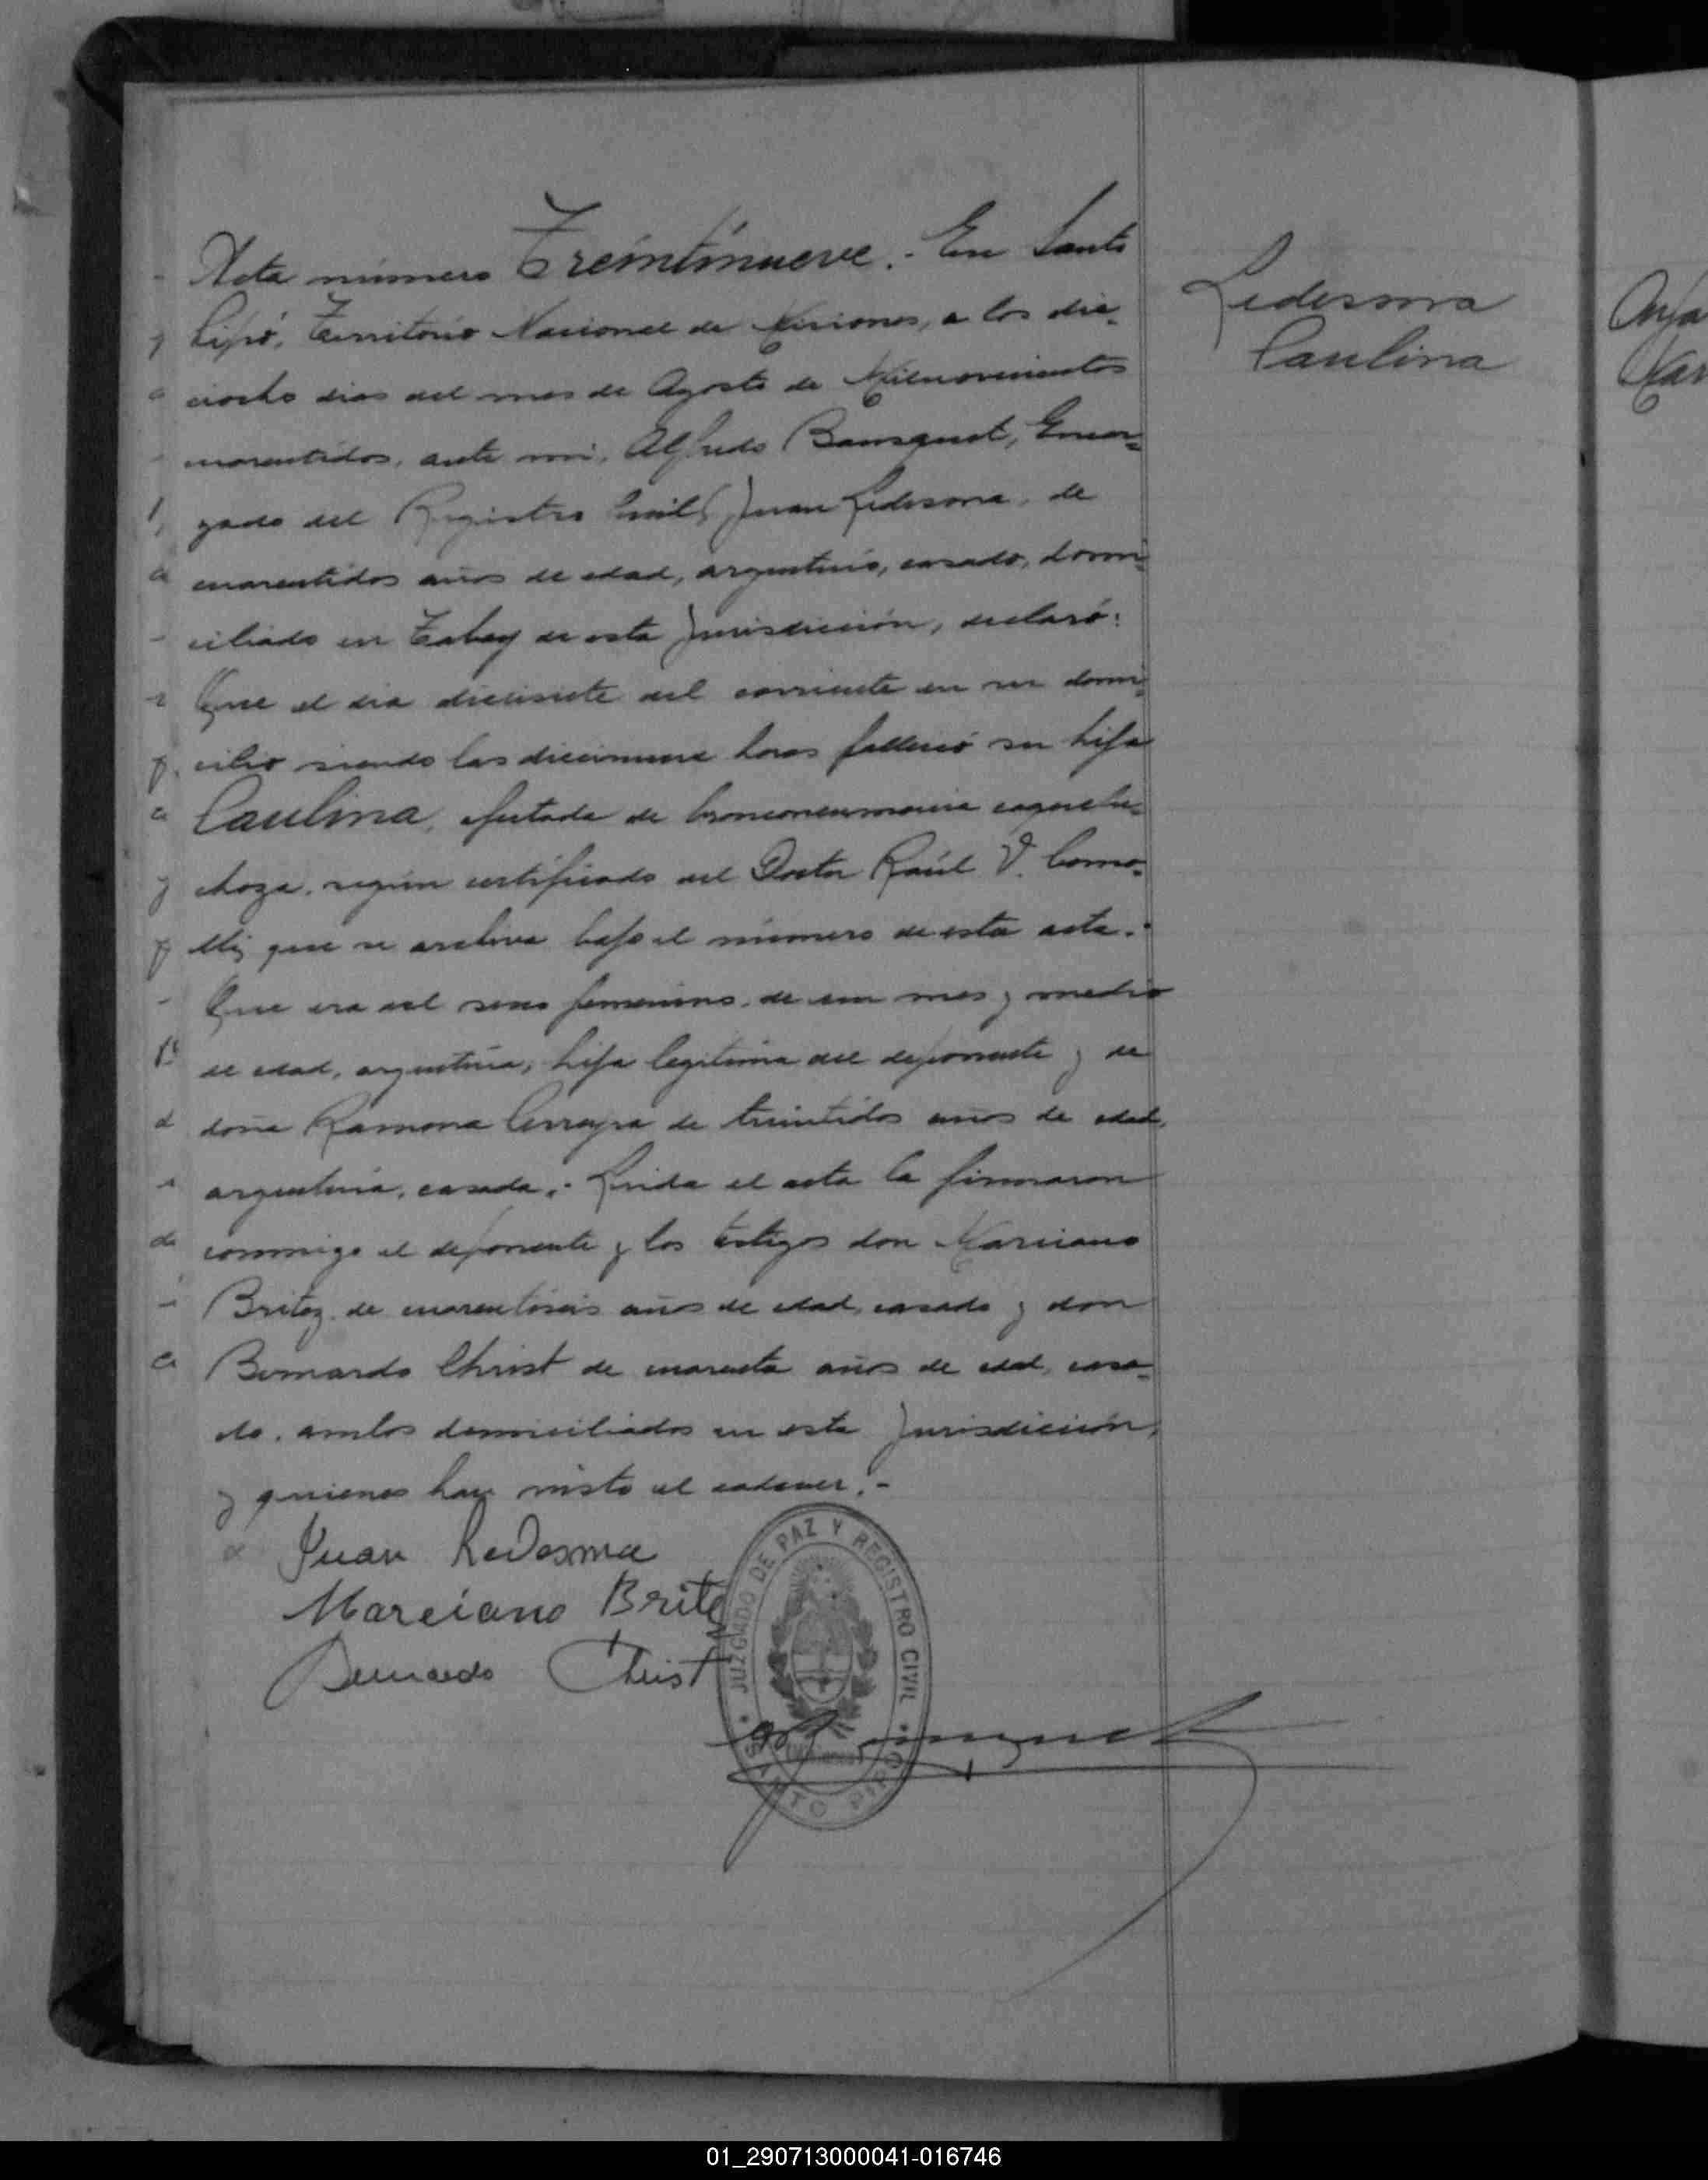 Acta número Treintinueve.- En Santo
Pipó, Territorio Nacional de Misiones, a los die-
ciocho dias del mes de Agosto de Milnovecientos
cuarentidos, ante mi, Alfredo Bousquet, Encar-
gado del Registro Civil, Juan Ledesma, de
cuarentidos años de edad, argentino, casado, domi-
ciliado en Tabay de esta Jurisdicción, declaró:
Que el dia diecisiete del corriente en su domi-
cilio siendo las diecinueve horas falleció su hija
Paulina, afectada de bronconeumonia
según certificado del Doctor Raúl V.
que se archiva bajo el número de esta acta.-
Que era del sexo femenino, de un mes y medio
de edad, argentina, hija legitima del deponente y de
doña Ramona de treintidos años de edad,
argentina, casada.- Leida el acta la firmaron
conmigo el deponente y los testigos don Marciano
Britez, de cuarentiseis años de edad, casado y don
Bernardo Christ de cuarenta años de edad, casa-
do, ambos domiciliados en esta Jurisdicción,
y quienes han visto el cadaver.-
Juan Ledesma
Marciano Britez
Bernardo Christ
JUZGADO DE PAZ Y REGISTRO CIVIL
SANTO PIPÓ
Ledesma
Paulina
01_290713000041-016746